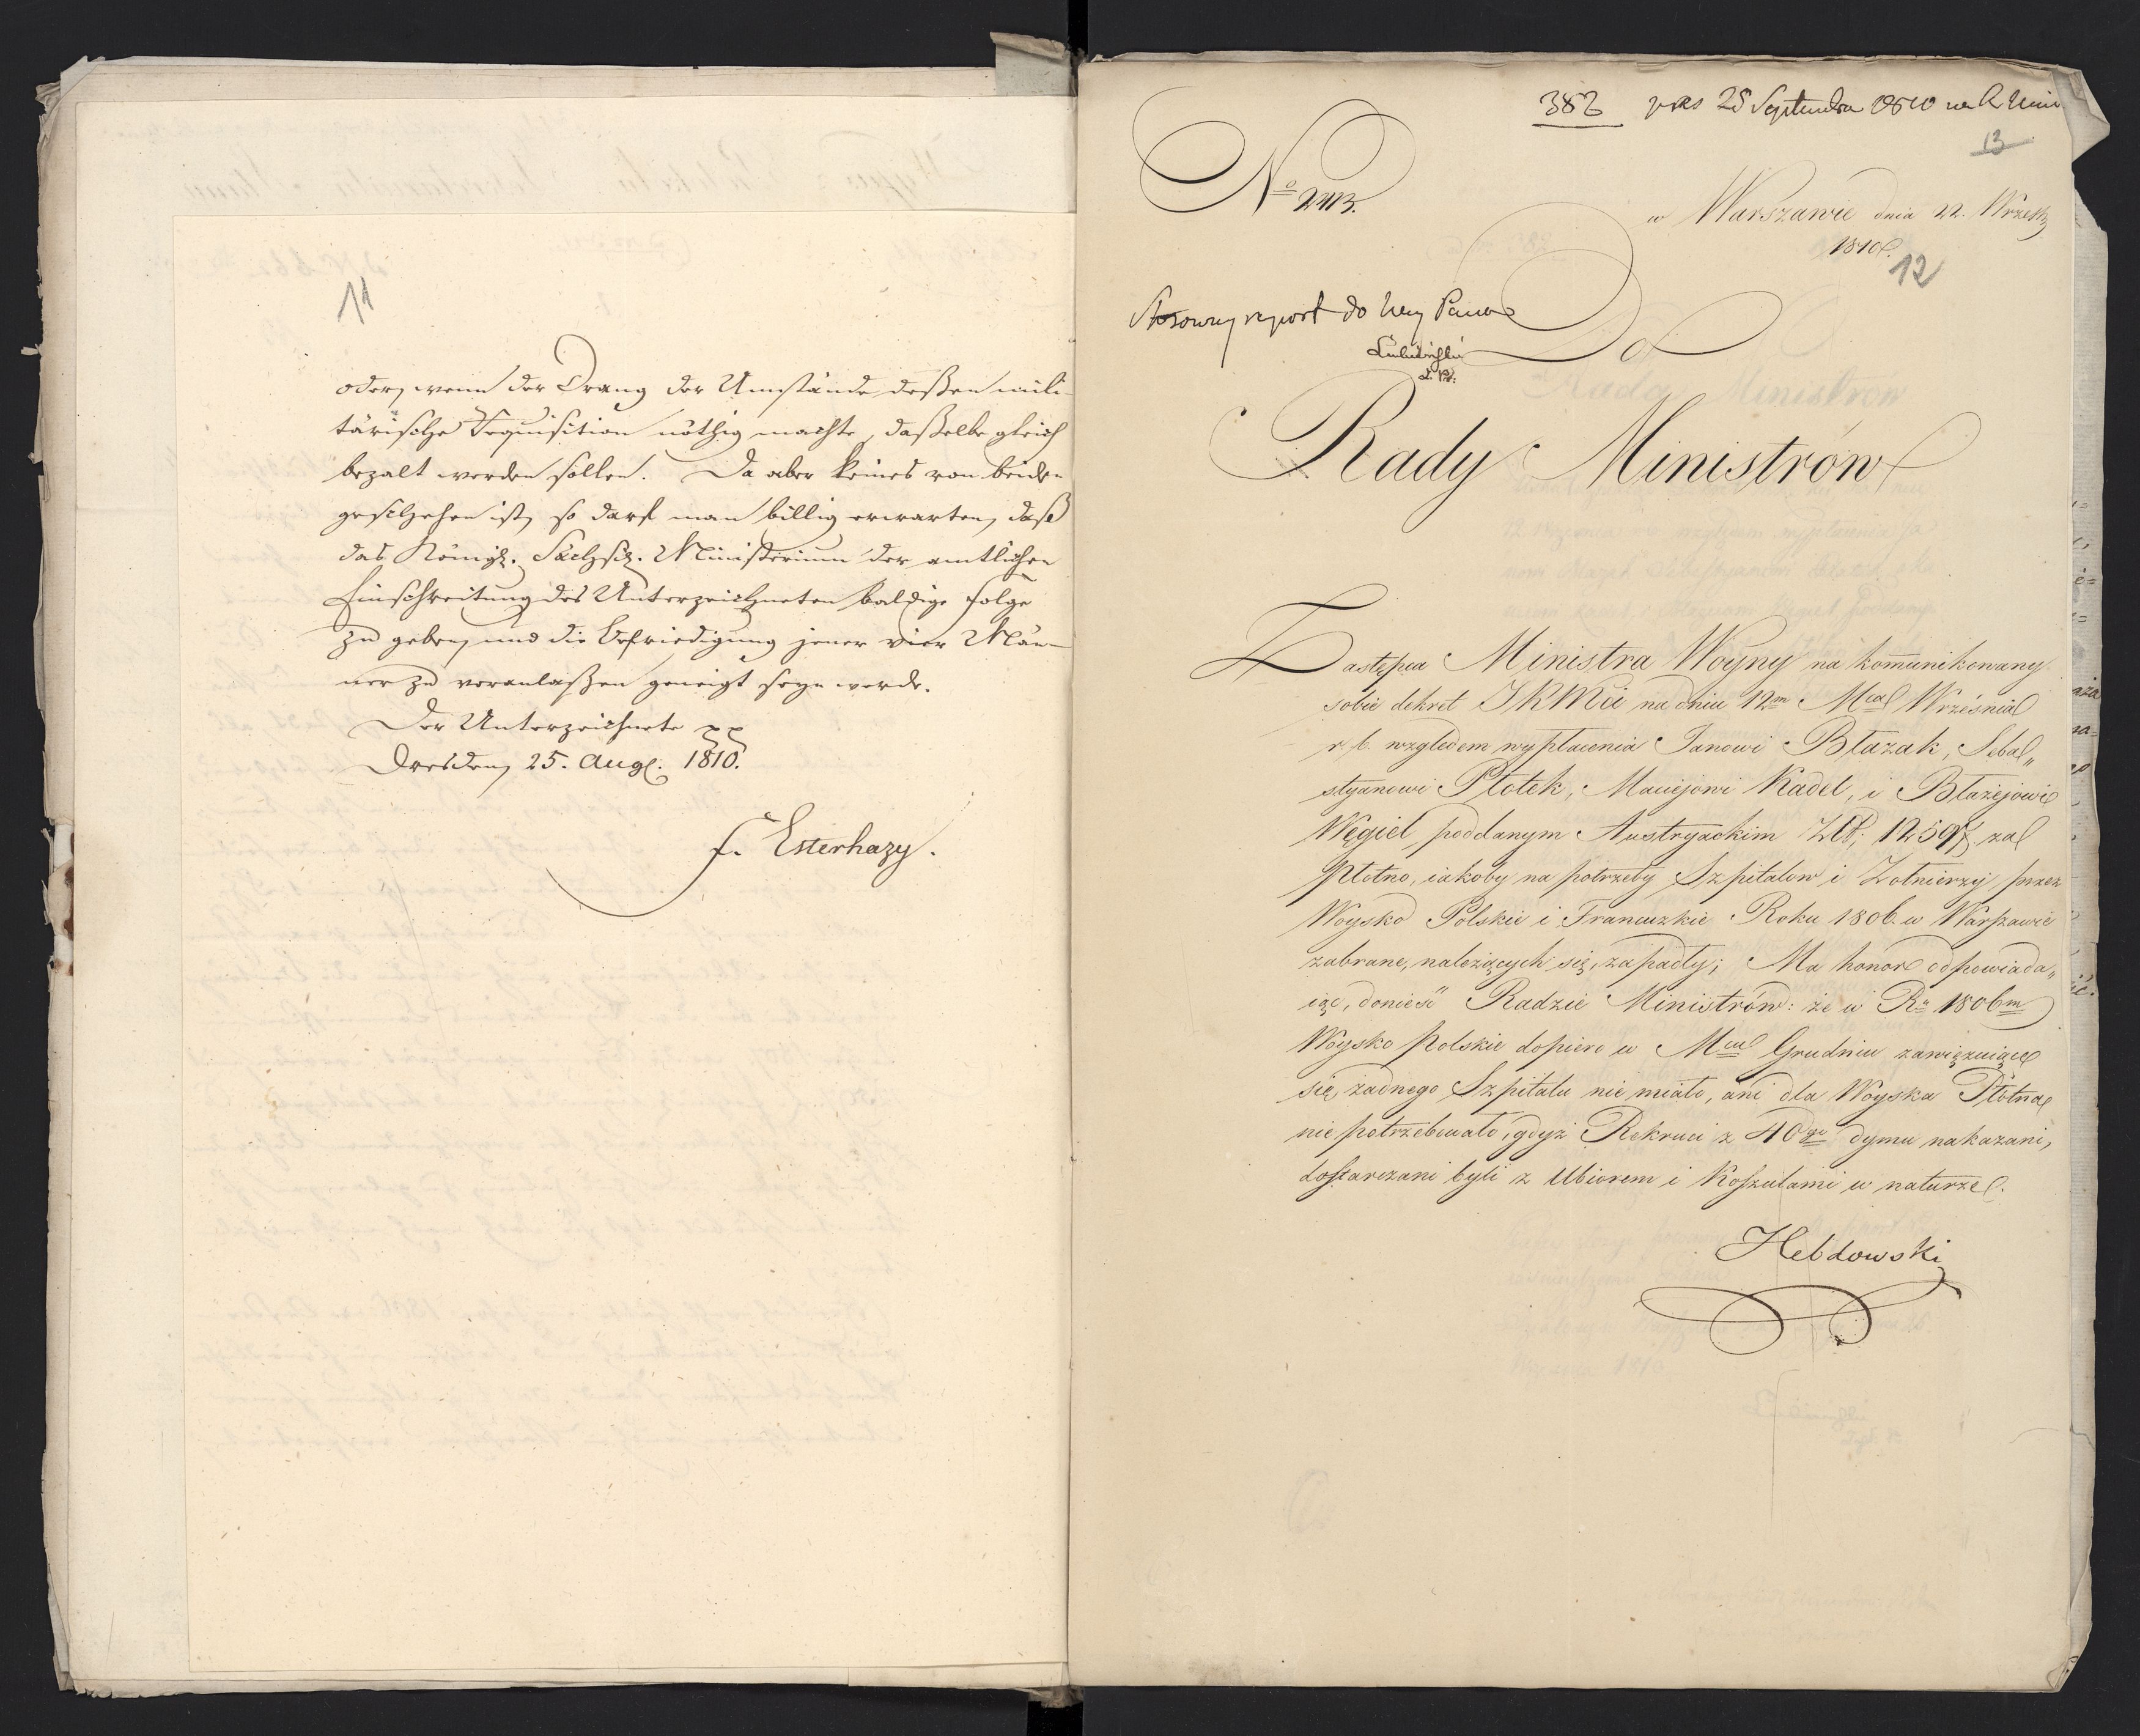 11
oder, wenn der Drang der Umstände deßen mili-
tärische Requisition nöthig machte, daßelbe gleich
bezalt werden sollen. Da aber keines von beiden
geschehen ist, so darf man billig erwarten, daß
das Königl. Sächsis. Ministerium der amtlichen
Einschreitung des Unterzeichneten baldige Folge
zu geben, und die Befriedigung jener vier Män-
ner zu veranlaßen geneigt seyn werde.
Der Unterzeichnete
Dresden, 25. Aug. 1810.
f. Esterhazy.
382 25 Septembra 1810
13
No 2413.
w Warszawie dnia 22. Wrześ
1810.
12
Stosowny report do Nay Pana
Lubieński
Do
Rady Ministrów
Zastępca Ministra Woyny na kom̄unikowany
sobie dekret JKMci na dniu 12m Mca Września
r. b. względem wypłacenia Janowi Błazak, Seba„
styanowi Płotek, Maciejowi Kadel, i Błażejowi
Węgiel, poddanym Austryackim Zł: 1259 za
Płótno, iakoby na potrzeby Szpitalow i Zołnierzy przez
Woysko Polskie i Francuzkie Roku 1806. w Warszawie
zabrane, należących się, zapadły; Ma honor odpowiada„
iąc, donieść Radzie Ministrów: że w Ru 1806m
Woysko Polskie dopiero w Mcu Grudniu zawięzuiące
się, żadnego Szpitalu nie miało, ani dla Woyska Płótna
nie potrzebowało, gdyż Rekruci z 10go dymu nakazani,
dostarczani byli z Ubiorem i Koszulami w naturze.
Hebdowski